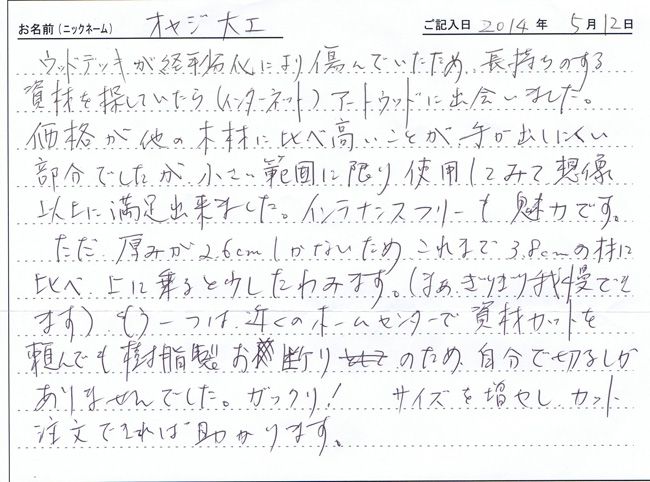 お名前(ニックネーム) オヤジ大工 ご記入日 2014年 5月12日
ウッドデッキが経年劣化により傷んでいたため、長持ちのする
資材を探していたら(インターネット)アートウッドに出会いました。
価格が他の木材に比べ高いことが、手が出しにくい
部分でしたが、小さい範囲に限り使用してみて想像
以上に満足出来ました。インテナンスフリーも魅力です。
ただ厚みが2.6cmしかないため これまで3.8cmの材に
比べ上に乗ると少したわみます。(まあ、ぎりぎり我慢でき
ます) もう一つは近くのホームセンターで資材カットを
頼んでも樹脂製お断り のため 自分で切るしか
ありませんでした。ガックリ! サイズを増やし カット
注文できれば助かります。